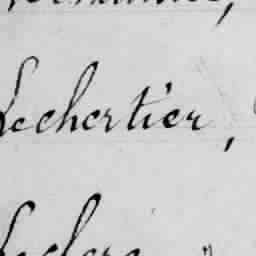 Lechertier,
Leclerc